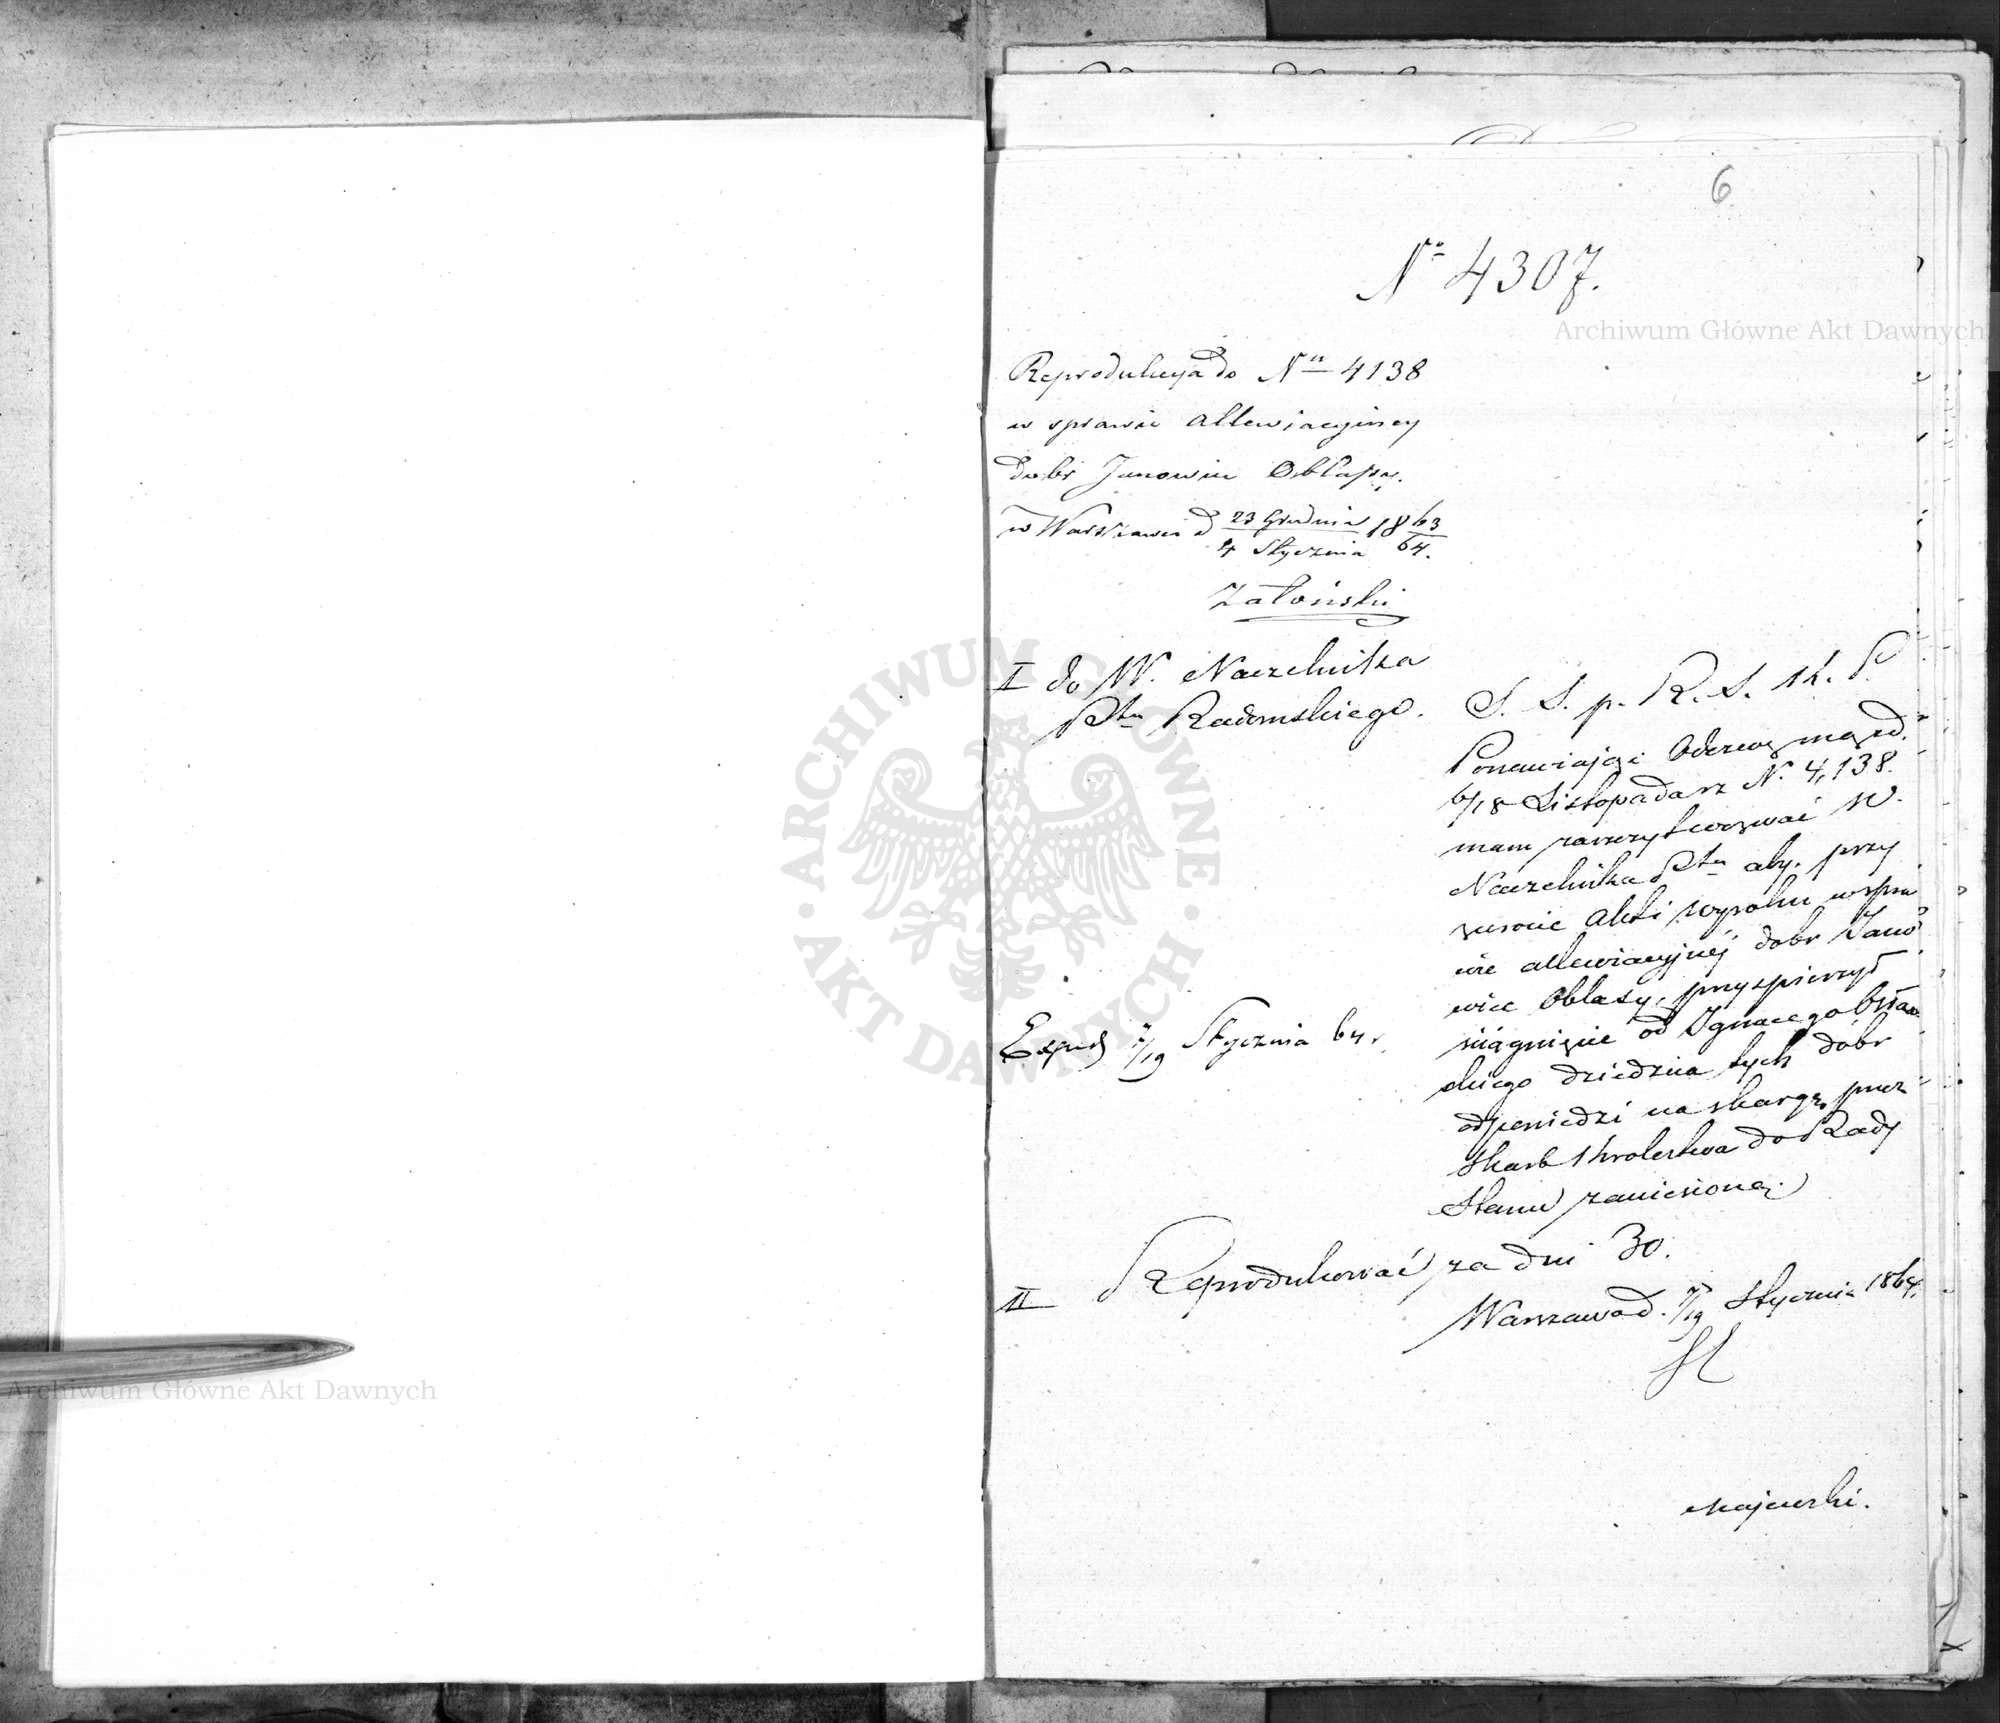 6
No 4307.
Reprodukcya do Nru 4138
w sprawie allewiacyiney
dobr Janowice Oblasy.
w Warszawie d 23 Grudnia / 4 Stycznia 18 63/64.
Załoński
I do W. Naczelnika
Ptu Radomskiego.
S. S. p. R. S. K. P.
Ponawiając Odezwę mą zd.
6/18 Listopada rz N. 4,138.
mam zaszczyt wezwać W.
Naczelnika Ptu aby. przy
zwrocie Akt i wyroku w spra
wie allewiacyjnéj dobr Jano
wice Oblasy, przyspieszył
ściągnięcie od Ignacego
skiego dziedzica tych dóbr
odpowiedzi na skargę, przez
Skarb Krolestwa do Rady
Stanu zaniesioną.
Exped 7/19 Stycznia 64 r.
II Reprodukować za dni 30.
Warszawa d. 7/19 Stycznia 1864.
Majewski.
Archiwum Główne Akt Dawnych
ARCHIWUM GŁÓWNE AKT DAWNYCH
Archiwum Główne Akt Dawnych